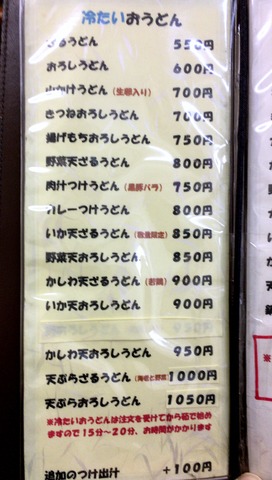 冷たいおうどん
ざるうどん 550円
おろしうどん 600円
山かけうどん (生卵入り) 700円
きつねおろしうどん 700円
揚げもちおろしうどん 750円
野菜天ざるうどん 800円
肉汁つけうどん (黒豚バラ) 750円
カレーつけうどん 800円
いか天ざるうどん (数量限定) 850円
野菜天おろしうどん 850円
かしわ天ざるうどん 900円
いか天おろしうどん 900円
かしわ天おろしうどん 950円
天ぷらざるうどん (海老と野菜) 1000円
天ぷらおろしうどん 1050円
※冷たいおうどんは注文を受けてから茹で始め
ますので15分~20分、お時間がかかります
追加のつけ出汁 +100円